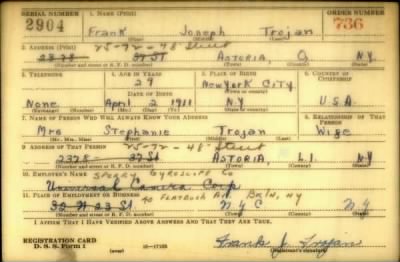 SERIAL NUMBER 1. NAME (Print) ORDER NUMBER
2904 Frank Joseph Trojan 736
(First) (Middle) (Last)
25-72-48 Street
2. ADDRESS (Print)
2328 37 ST ASTORIA, Q. N.Y.
(Number and street or R. F. D. number) (Town) (County) (State)
3. TELEPHONE 4. AGE IN YEARS 5. PLACE OF BIRTH 6. COUNTRY OF CITIZENSHIP
29 New York City
DATE OF BIRTH
None April 2 1911 NY U.S.A.
(Exchange) (Number) (Mo.) (Day) (Yr.) (State or country)
7. NAME OF PERSON WHO WILL ALWAYS KNOW YOUR ADDRESS 8. RELATIONSHIP OF THAT PERSON
Mrs Stephanie Trojan Wife
(Mr., Mrs., Miss) (First) (Middle) (Last)
25-72-48 Street
9. ADDRESS OF THAT PERSON
2328 37 St ASTORIA, L.I. NY
(Number and street or R. F. D. number) (Town) (County) (State)
10. EMPLOYER'S NAME SPERRY GYROSCOPE Co
Universal Camera Corp
11. PLACE OF EMPLOYMENT OR BUSINESS 40 FLATBUSH AV. BKLN, NY
32 W 23 St. NYC NY
(Number and street or R. F. D. number) (Town) (County) (State)
I AFFIRM THAT I HAVE VERIFIED ABOVE ANSWERS AND THAT THEY ARE TRUE.
REGISTRATION CARD
D. S. S. Form 1 (over) 16-17105 Frank J. Trojan